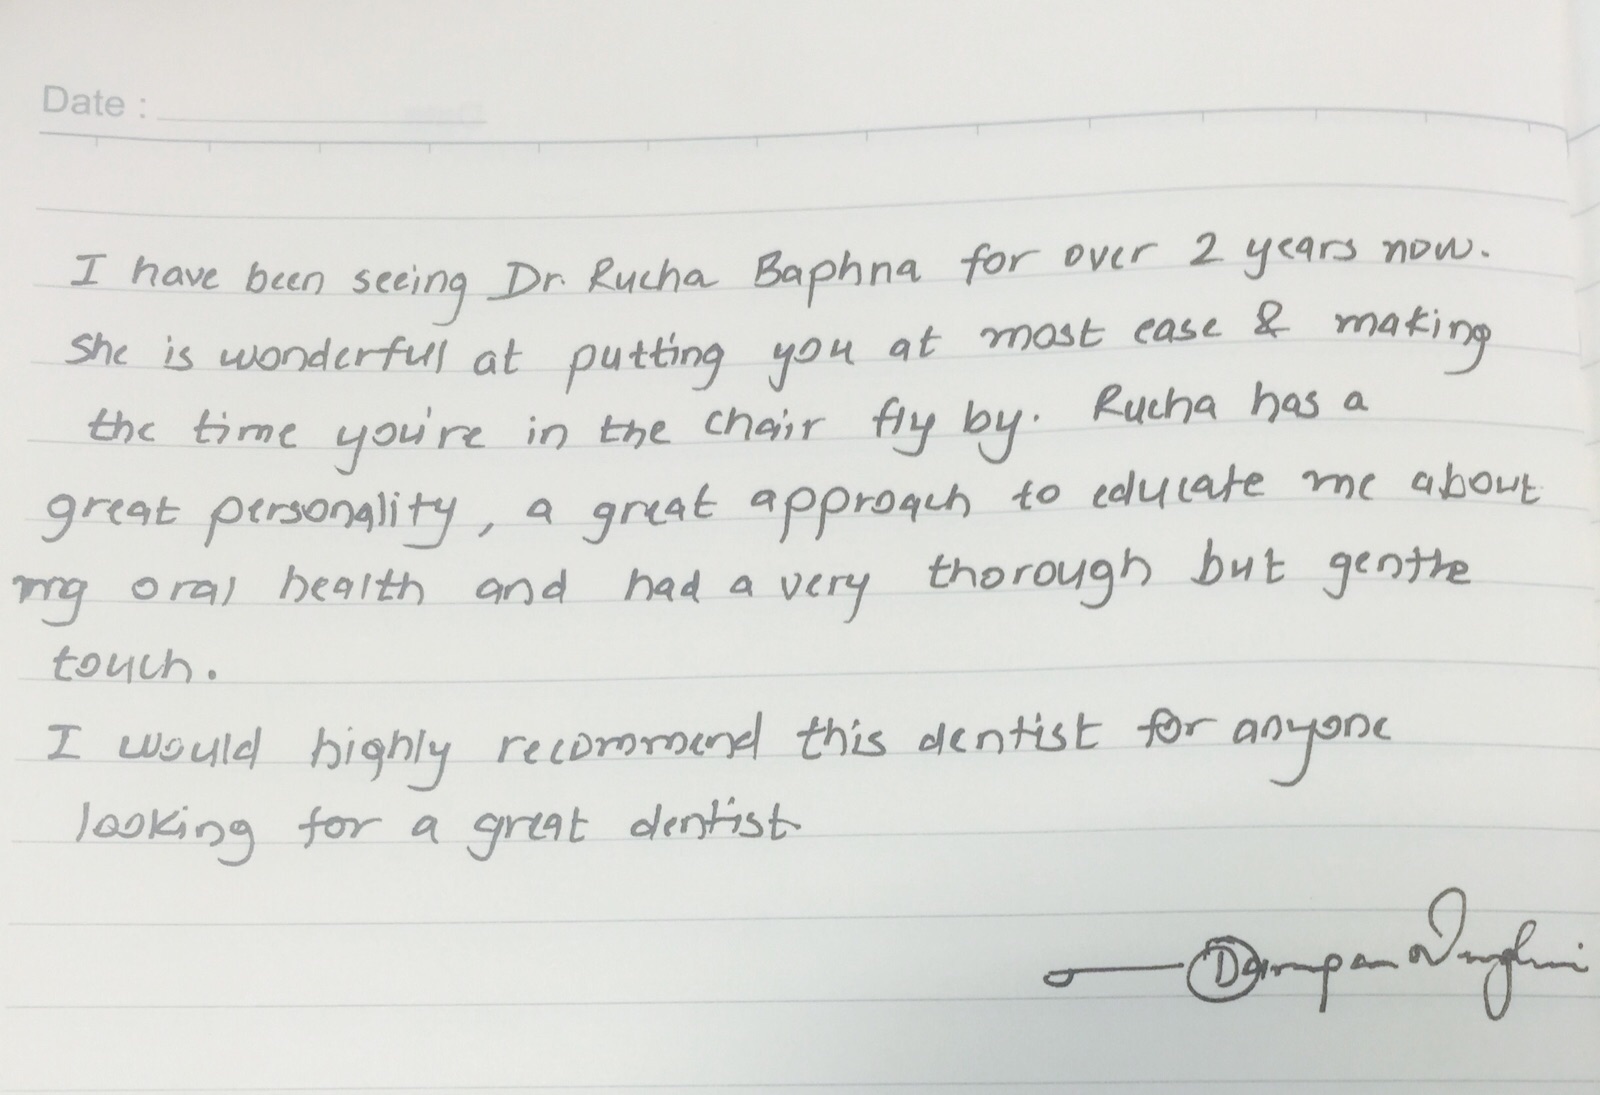 Date :
I have been seeing Dr. Rucha Baphna for over 2 years now.
She is wonderful at putting you at most ease & making
the time you're in the chair fly by. Rucha has a
great personality, a great approach to educate me about
my oral health and had a very thorough but gentle
touch.
I would highly recommend this dentist for anyone
looking for a great dentist